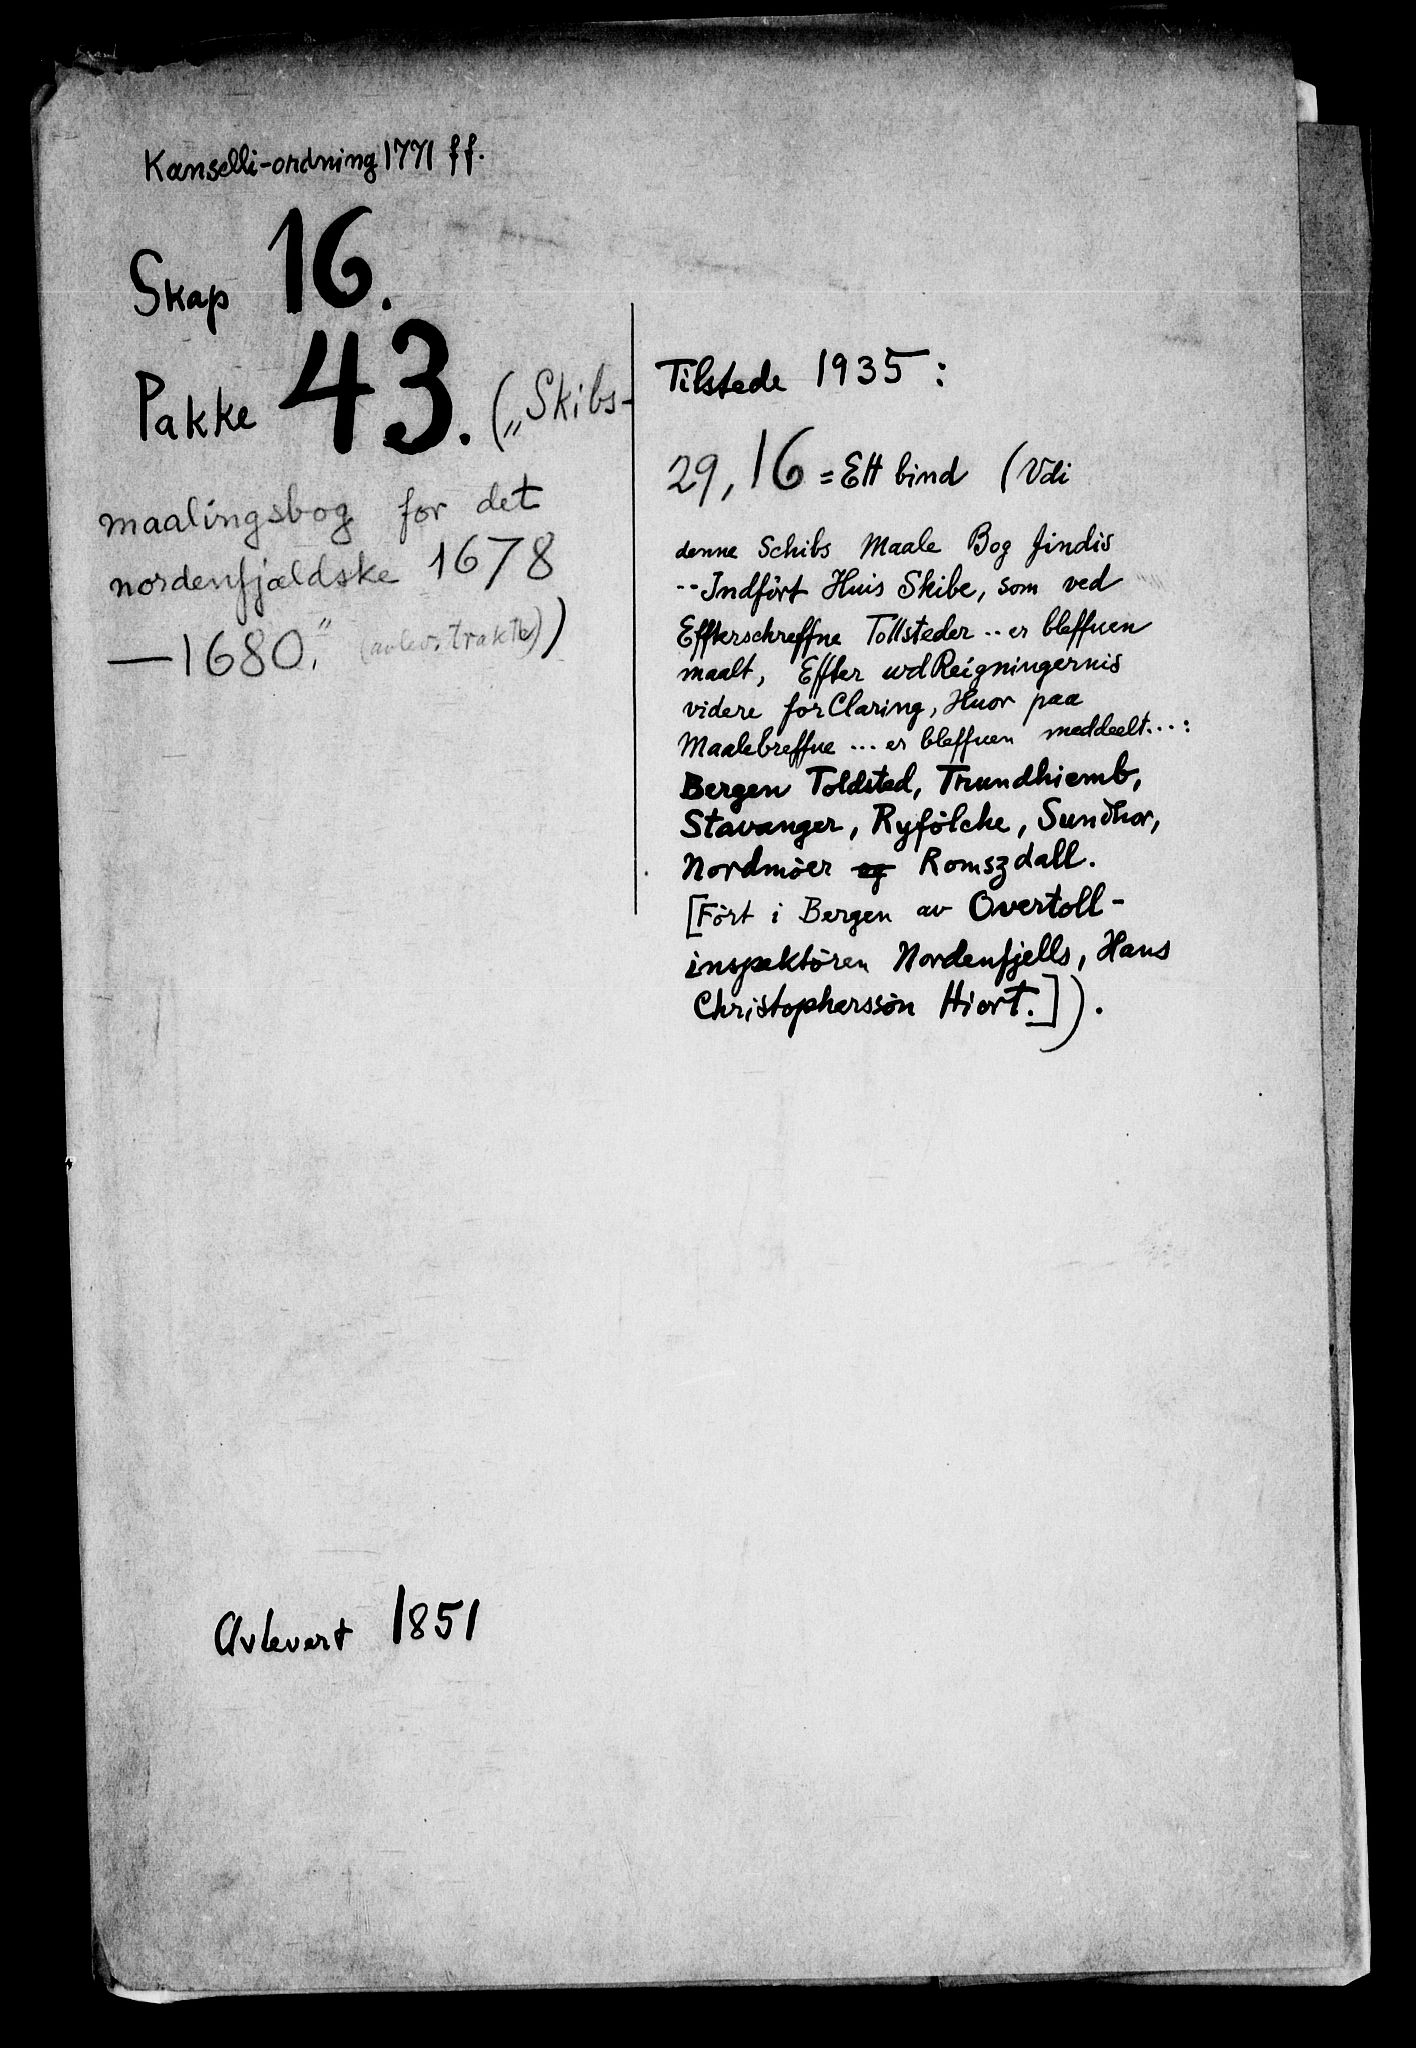 Kanselli-ordning 1771 ff.
Skap 16.
Pakke 43. („Skibs-
maalingsbog for det
nordenfjældske 1678
—1680." (avlev.trakt.))
Tilstede 1935:
29,16 = Ett bind (Vdi
denne Schibs Maale Bog findis
--Indført Huis Skibe, som ved
Effterschreffne Tollsteder .. er bleffuen
maalt, Effter udReigningernis
videre forClaring, Huor paa
Maalebreffue ... er bleffuen meddeelt...:
Bergen Toldsted, Trundhiemb,
Stavanger, Ryfølche, Sundhor,
Nordmøer og Romszdall.
[Ført i Bergen av Overtoll-
inspektøren Nordenfjells, Hans
Christopherssøn Hiort.]).
Avlevert 1851